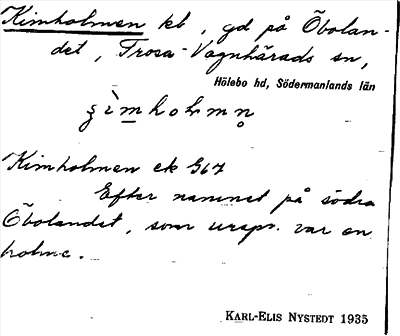 Kimholmen kb, gd på Öbolan-
det, Trosa-Vagnhärads sn,
Hölebo hd, Södermanlands län
Kimholmen ek
Efter namnet på södra
Öbolandet, som urspr. var en
holme.
KARL-ELIS NYSTEDT 1935